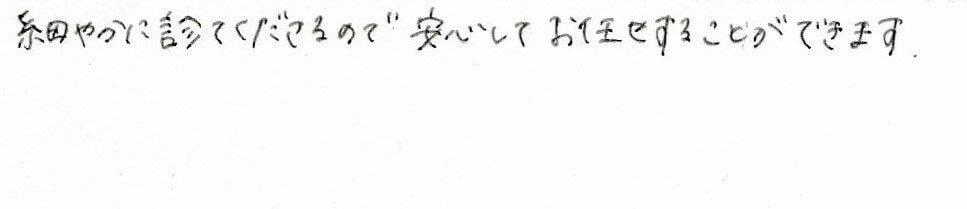 細やかに診てくださるので安心してお任せすることができます.